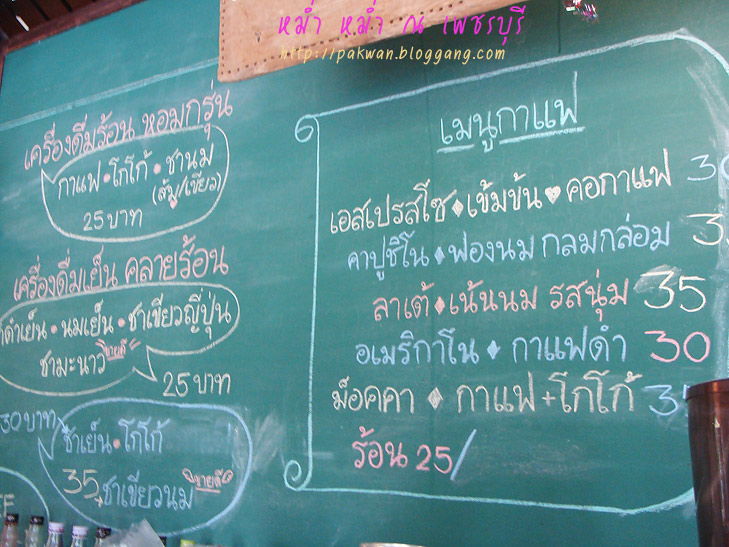 หม่ำ หม่ำ ณ เพชรบุรี
http://pakwan.bloggang.com
เครื่องดื่มร้อน หอมกรุ่น
กาแฟ • โกโก้ • ชานม
(ส้ม/เขียว)
25 บาท
เครื่องดื่มเย็น คลายร้อน
ชาดำเย็น • นมเย็น • ชาเขียวญี่ปุ่น
ชามะนาว ขายดี
25 บาท
30 บาท
ชาเย็น • โกโก้
35 ชาเขียวนม ขายดี
เมนูกาแฟ
เอสเปรสโซ ♦ เข้มข้น ♥ คอกาแฟ
คาปูชิโน ♦ ฟองนม กลมกล่อม
ลาเต้ ♦ เน้นนม รสนุ่ม 35
อเมริกาโน ♦ กาแฟดำ 30
ม็อคคา ♦ กาแฟ + โกโก้
ร้อน 25/